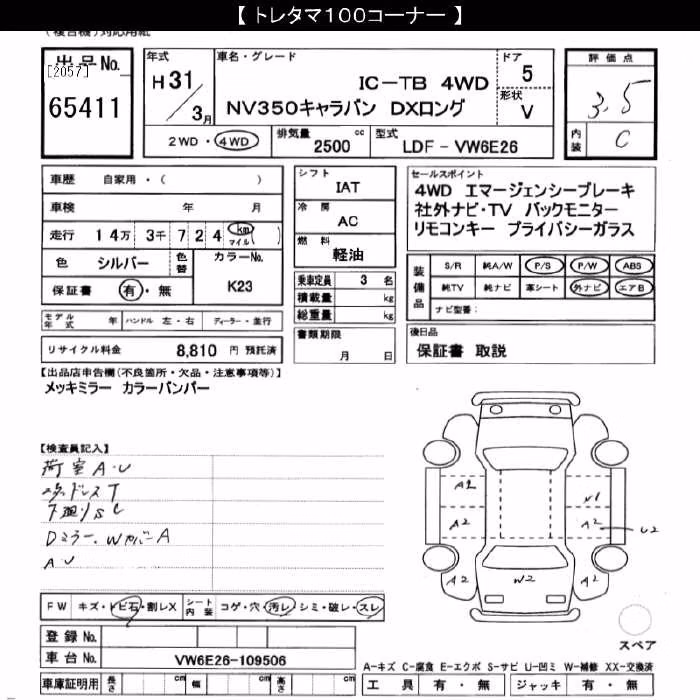 【 トレタマ１００コーナー 】
(複合機)対応用紙
出品No.
[2057]
65411
年式
H 31/3月
車名・グレード
IC－TB 4WD
NV350キャラバン DXロング
ドア 5
形状 V
評価点
3.5
内装 C
2WD・4WD
排気量 2500 cc
型式 LDF - VW6E26
車歴 自家用・( )
車検 年 月
走行 14万 3千 7 2 4 km マイル ( )
色 シルバー 色替 カラーNo. K23
保証書 有・無
モデル年式 年 ハンドル 左・右 ディーラー・並行
リサイクル料金 8,810 円 預託済
シフト IAT
冷房 AC
燃料 軽油
乗車定員 3 名
積載量 kg
総重量 kg
書類期限 月 日
セールスポイント
4WD エマージェンシーブレーキ
社外ナビ・TV バックモニター
リモコンキー プライバシーガラス
装備品
S/R 純A/W P/S P/W ABS
純TV 純ナビ 革シート 外ナビ エアB
ナビ型番:
後日品
保証書 取説
【出品店申告欄(不良箇所・欠品・注意事項等)】
メッキミラー カラーバンパー
【検査員記入】
荷室 A・U
内ドレス T
下廻り S C
Dミラー、Wカバー A
A U
A2
W1
A2
A2
U2
A2
W2
A2
スペア
FW キズ・トビ石・割レX シート内装 コゲ・穴・汚レ・シミ・破レ・スレ
登録 No.
車台 No. VW6E26-109506
車庫証明用 長さ cm 幅 cm 高さ cm
A-キズ C-腐食 E-エクボ S-サビ U-凹ミ W-補修 XX-交換済
工具 有・無 ジャッキ 有・無